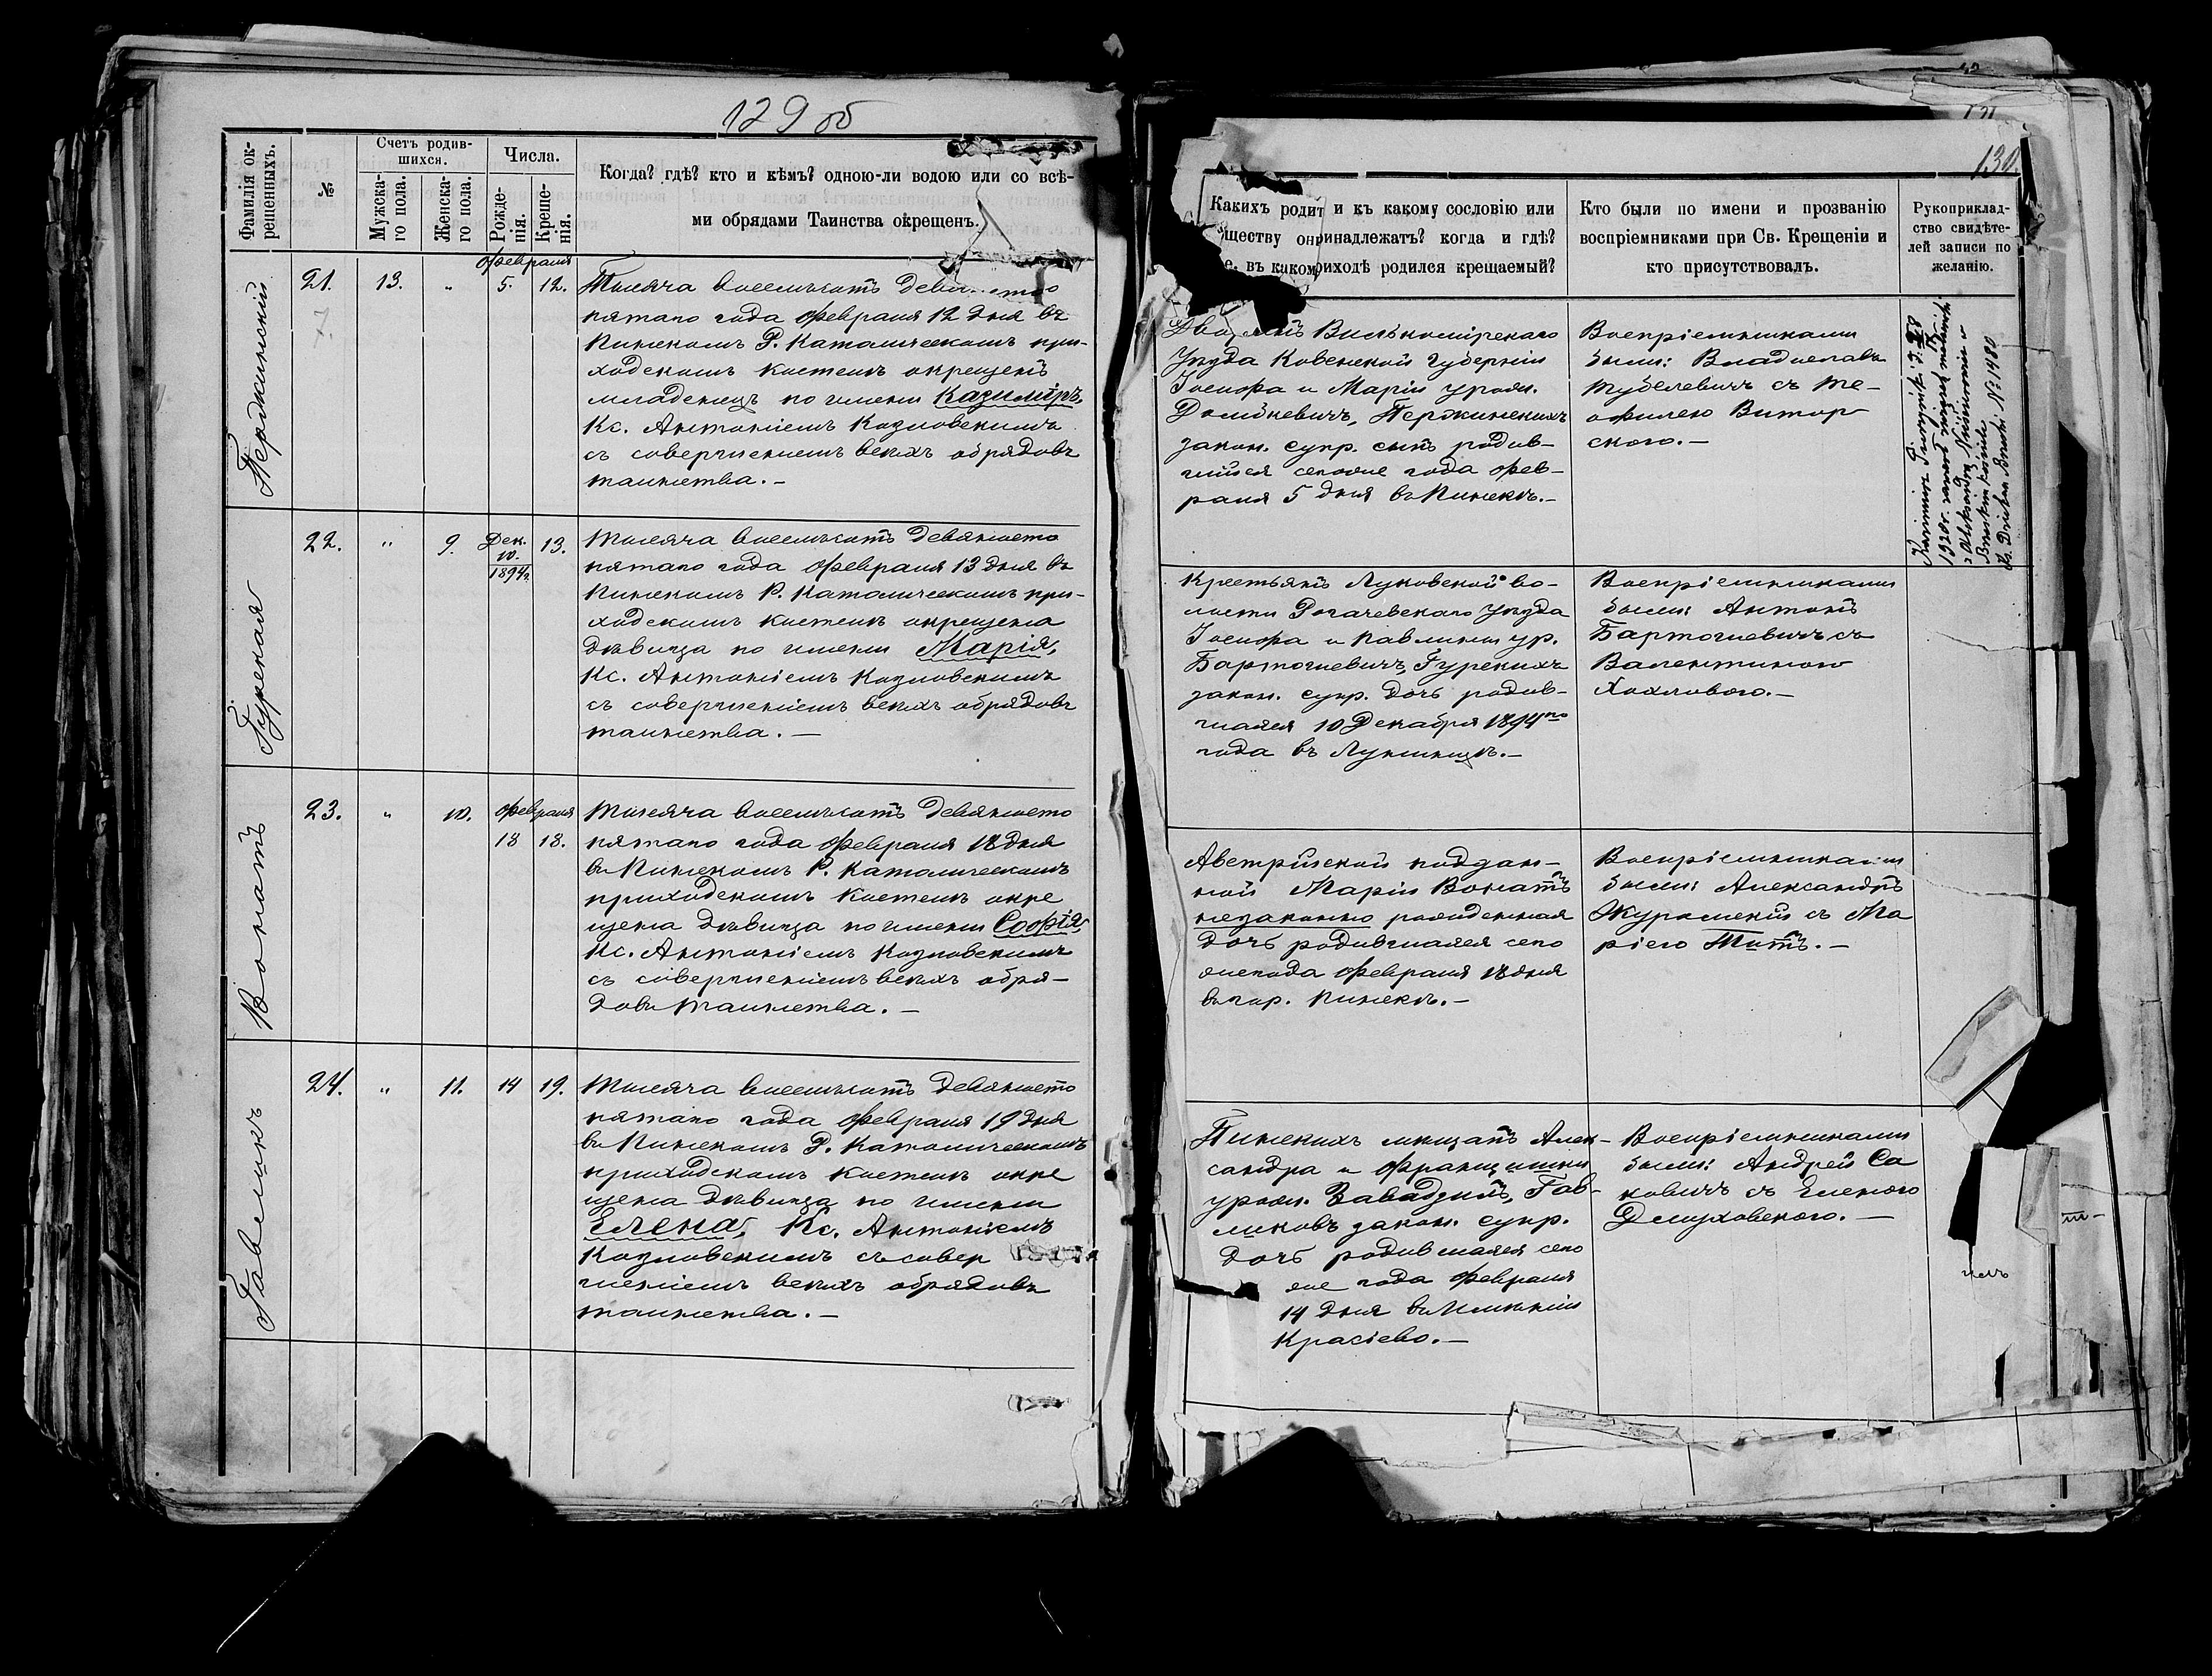 129 об
Фамилія ок-
рещенныхъ.
№
Счетъ родив-
шихся.
Мужска-
го пола.
Женска-
го пола.
Числа.
Рожде-
нія.
Креще-
нія.
Когда? гдѣ? кто и кѣмъ? одною-ли водою или со всѣ-
ми обрядами Таинства окрещенъ.
Пержинскій
21.
13.
"
Февраля
5.
12.
Тысяча восемьсотъ
пятаго года Февраля 12 дня въ
Пинскомъ Р. Католическомъ при-
ходскомъ костелѣ окрещенъ
младенецъ по имени Казиміръ,
Кс. Антоніемъ Козловскимъ
съ совершеніемъ всѣхъ обрядовъ
таинства. —
Гурская
22.
"
9.
Дек.
10.
1894г.
13.
Тысяча восемьсотъ девяносто
пятаго года Февраля 13 дня въ
Пинскомъ Р. Католическомъ при-
ходскомъ костелѣ окрещена
дѣвица по имени Марія,
Кс. Антоніемъ Козловскимъ
съ совершеніемъ всѣхъ обрядовъ
таинства. —
Вонатъ
23.
"
10.
Февраля
18
18.
Тысяча восемьсотъ девяносто
пятаго года Февраля 18 дня
въ Пинскомъ Р. Католическомъ
приходскомъ костелѣ окре
щена дѣвица по имени Софія,
Кс. Антоніемъ Козловскимъ
съ совершеніемъ всѣхъ обря-
довъ таинства. —
Гавеликъ
24.
"
11.
14
19.
Тысяча восемьсотъ девяносто
пятаго года Февраля 19 дня
въ Пинскомъ Р. Католическомъ
приходскомъ костелѣ окре
щена дѣвица по имени
Елена, Кс. Антоніемъ
Козловскимъ съ совер
шеніемъ всѣхъ обрядовъ
таинства. —
130.
Какихъ родит и къ какому сословію или
ществу он ринадлежатъ? когда и гдѣ?
е. въ каком риходѣ родился крещаемый?
Кто были по имени и прозванію
воспріемниками при Св. Крещеніи и
кто присутствовалъ.
Рукоприклад-
ство свидѣте-
лей записи по
желанію.
Вилькомірскаго
Уѣзда Ковенской Губерніи
Іосифа и Маріи урожн.
Домбкевичъ, Пержинскихъ
закон. супр. сынъ родив-
шійся сегоже года Фев-
раля 5 дня въ Пинскѣ. —
Воспріемниками
были: Владиславъ
Тубелевичъ съ Те-
офилею Витор
скою. —
1920r.
z Aleksandrą
№ 1480
Крестьянъ Луковской во-
лости Рогачевскаго Уѣзда
Іосифа и Павлины ур.
Бартошевичъ, Гурскихъ
закон. супр. дочь родив-
шаяся 10 Декабря 1894го
года въ Лунинцѣ. —
Воспріемниками
были: Антонъ
Бартошевичъ съ
Валентиною
Хохловою. —
Австрійской поддан-
ной Маріи Вонатъ
незаконно рожденная
дочь родившаяся сего
жегода Февраля 18 дня
въ гор. Пинскѣ. —
Воспріемниками
были: Александръ
Журомскій съ Ма
ріею Титъ. —
Пинскихъ мѣщанъ Алек-
сандра и Францишки
урожн. Завадзкихъ, Гав-
ликовъ закон. супр.
дочь родившаяся сего
же года Февраля
14 дня въ Имѣніи
Красіево. —
Воспріемниками
были: Андрей Са
ковичъ съ Еленою
Длуховскою. —